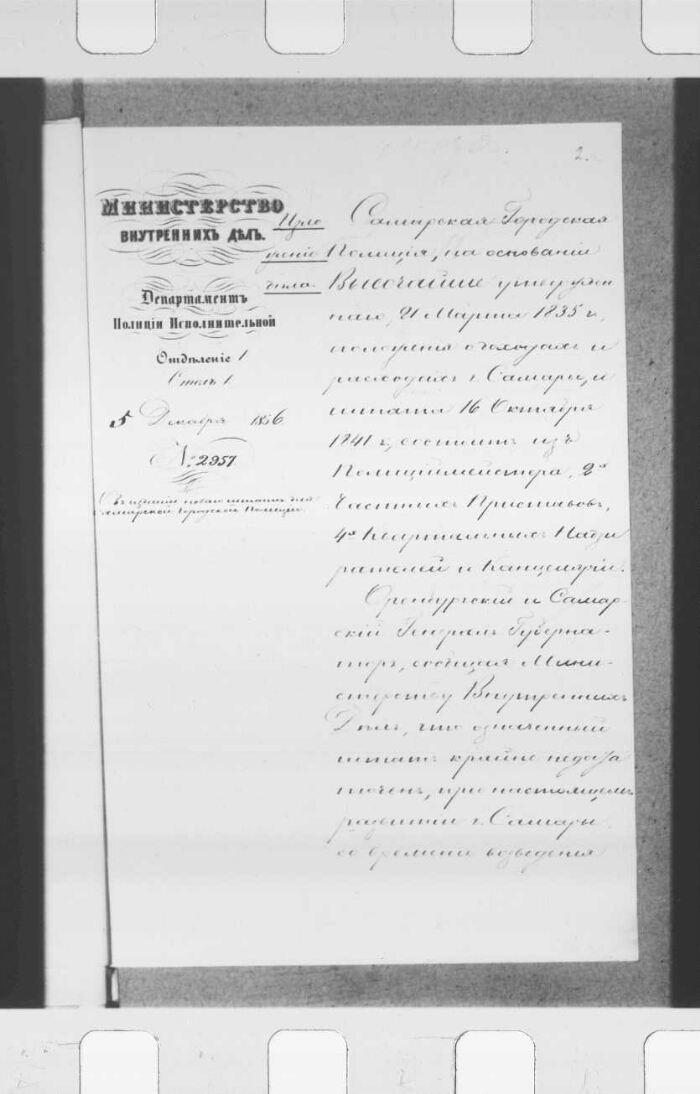 2.
МИНИСТЕРСТВО
ВНУТРЕННИХЪ ДѢЛЪ.
Департаментъ
Полиціи Исполнительной
Отдѣленіе 1
Столъ 1
5 Декабря 1856
№ 2957
Объ изданіи новаго штата для
Самарской Городской Полиціи.
Изло
женіе
дѣла.
Самарская Городская
Полиція, на основаніи
Высочайше утвержден
наго, 21 Марта 1835 г.,
положенія о доходахъ и
расходахъ г. Самары, и
штата 16 Октября
1841 г., состоитъ изъ
Полиціймейстера, 2хъ
Частныхъ Приставовъ,
4хъ Квартальныхъ Надзи
рателей и Канцеляріи.
Оренбургскій и Самар-
скій Генералъ Губерна-
торъ, сообщая Мини-
стерству Внутреннихъ
Дѣлъ, что означенный
штатъ крайне недоста
точенъ, при настоящемъ
развитіи г. Самары
со времени возведенія